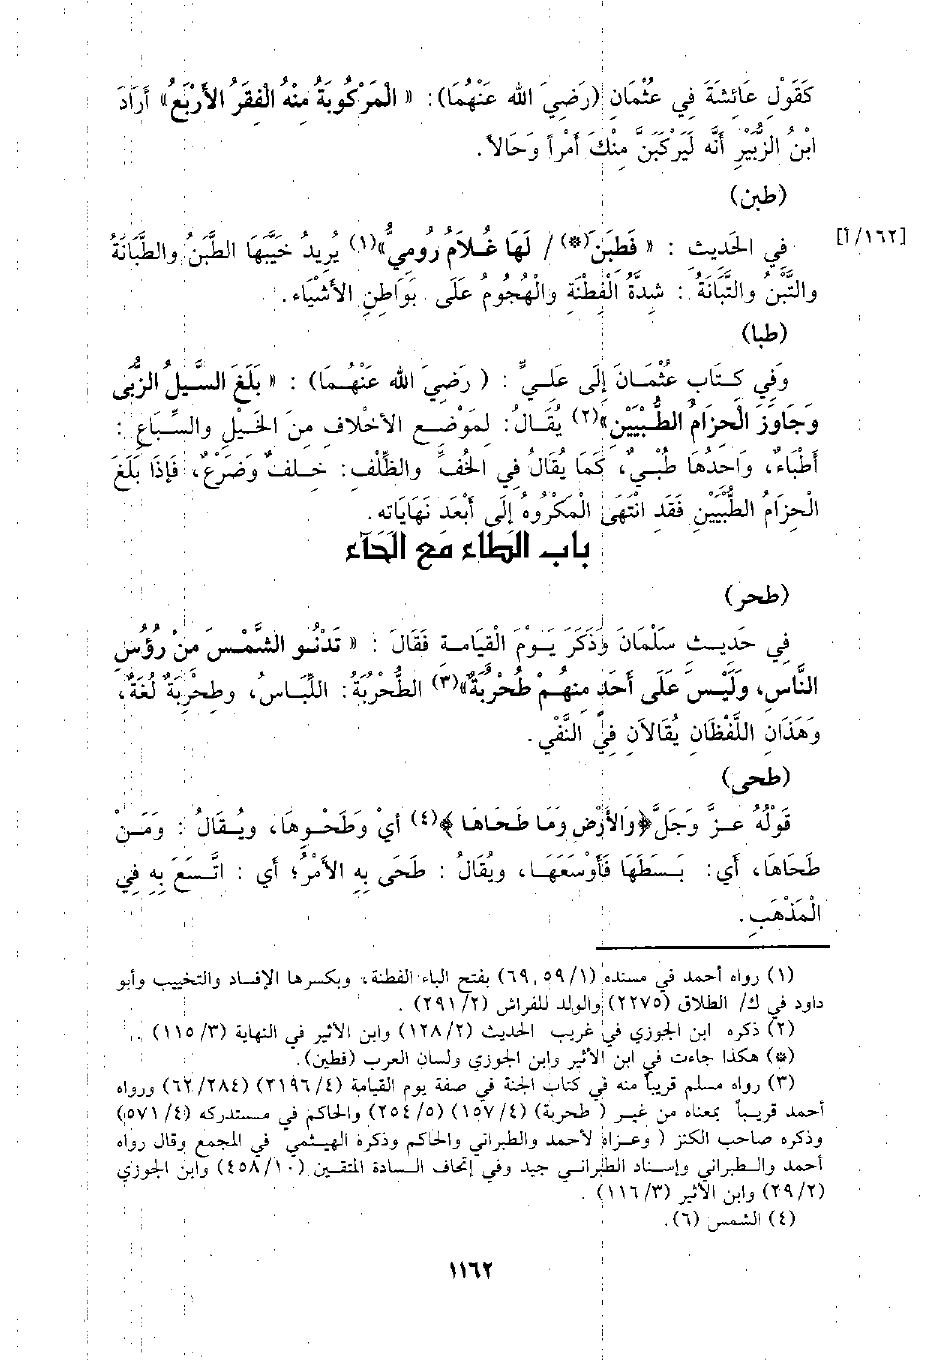 كَقَوْلِ عَائِشَةَ فِي عثْمان (رَضِيَ الله عَنْهُمَا): « الْمَرْكُوبَةُ مِنْهُ الْفِقَرُ الأَرْبَعُ» أرَادَ
ابْنُ الزُّبَيْرِ أنَّه لَيَرْكَبَنَّ مِنْكَ أمْراً وَحَالاً.
(طبن)
[١٦٢/أ] في الحَديث : « فَطَبَنَ(*) / لَهَا غُلاَمٌ رُوميٌّ»(١) يُرِيدُ خَيَّبَهَا الطَّبَنُ والطَّبَانَةُ
والتَّبَنُ والتَّبَانَةُ : شِدَّةُ الْفِطْنَةِ والْهُجُومُ عَلَى بَوَاطِنِ الأشْيَاء.
(طبا)
وَفِي كتَابِ عثْمَانَ إلَى عَلَيٍّ : ( رَضِيَ الله عَنْهُمَا) : « بَلَغَ السَّيلُ الزُّبَى
وَجَاوَزَ الْحِزَامُ الطُّبْيَيْنِ»(٢) يُقَالُ: لِمَوْضِعِ الأخْلافِ مِنَ الخَيْلِ والسِّبَاعِ :
أطْبَاءٌ، وَاحدُهَا طُبْيٌ، كَمَا يُقَالُ فِي الخُفِّ والظِّلْفِ: خلفٌ وَضَرْعٌ، فَإذَا بَلَغَ
الْحِزَامُ الطُّبْيَيْنِ فَقَدِ انْتَهَى الْمَكْرُوهُ إلَى أبْعَدِ نَهَايَاته.
باب الطاء مَع الحَآء
(طحر)
في حَديث سَلْمَانَ وَذَكَرَ يَوْمَ الْقيَامة فَقَالَ : « تَدْنُو الشَّمْسُ مِنْ رُؤُسِ
النَّاسِ، وَلَيْسَ عَلَى أَحَدٍ مِنهُمْ طُحْرُبَةٌ»(٣) الطُّحْرُبَةُ: اللِّبَاسُ، وطِحْرِبَةٌ لُغَةٌ،
وَهَذَانِ اللَّفْظَانِ يُقَالاَنِ فِي النَّفْي.
(طحى)
قَوْلُهُ عزَّ وَجَلَّ﴿والأَرْضِ وَمَا طَحَاهَا ﴾(٤) أيْ وَطَحْوِهَا، ويُقَالُ : وَمَنْ
طَحَاهَا، أي: بَسَطَهَا فَأوْسَعَهَا، ويُقَالُ : طَحَى بِهِ الأمْرُ؛ أي : اتَّسَعَ بِهِ فِي
الْمَذْهَبِ.
(١) رواه أحمد في مسنده (٥٩/١, ٦٩) بفتح الباء الفطنة، وبكسرها الإفساد والتخييب وأبو
داود في ك/ الطلاق (٢٢٧٥) والولد للفراش (٢٩١/٢) .
(٢) ذكره ابن الجوزي في غريب الحديث (١٢٨/٢) وابن الأثير في النهاية (١١٥/٣) .
(*) هكذا جاءت في ابن الأثير وابن الجوزي ولسان العرب (فطين).
(٣) رواه مسلم قريباً منه في كتاب الجنة في صفة يوم القيامة (٢١٩٦/٤) (٦٢/٢٨٤) ورواه
أحمد قريباً بمعناه من غير ( طحربة) (١٥٧/٤) (٢٥٤/٥) والحاكم في مستدركه (٥٧١/٤)
وذكره صاحب الكنز ( وعزاه لأحمد والطبراني والحاكم وذكره الهيثمي في المجمع وقال رواه
أحمد والطبراني وإسناد الطبراني جيد وفي إتحاف السادة المتقين (٤٥٨/١٠) وابن الجوزي
(٢٩/٢) وابن الأثير (١١٦/٣) .
(٤) الشمس (٦).
١١٦٢